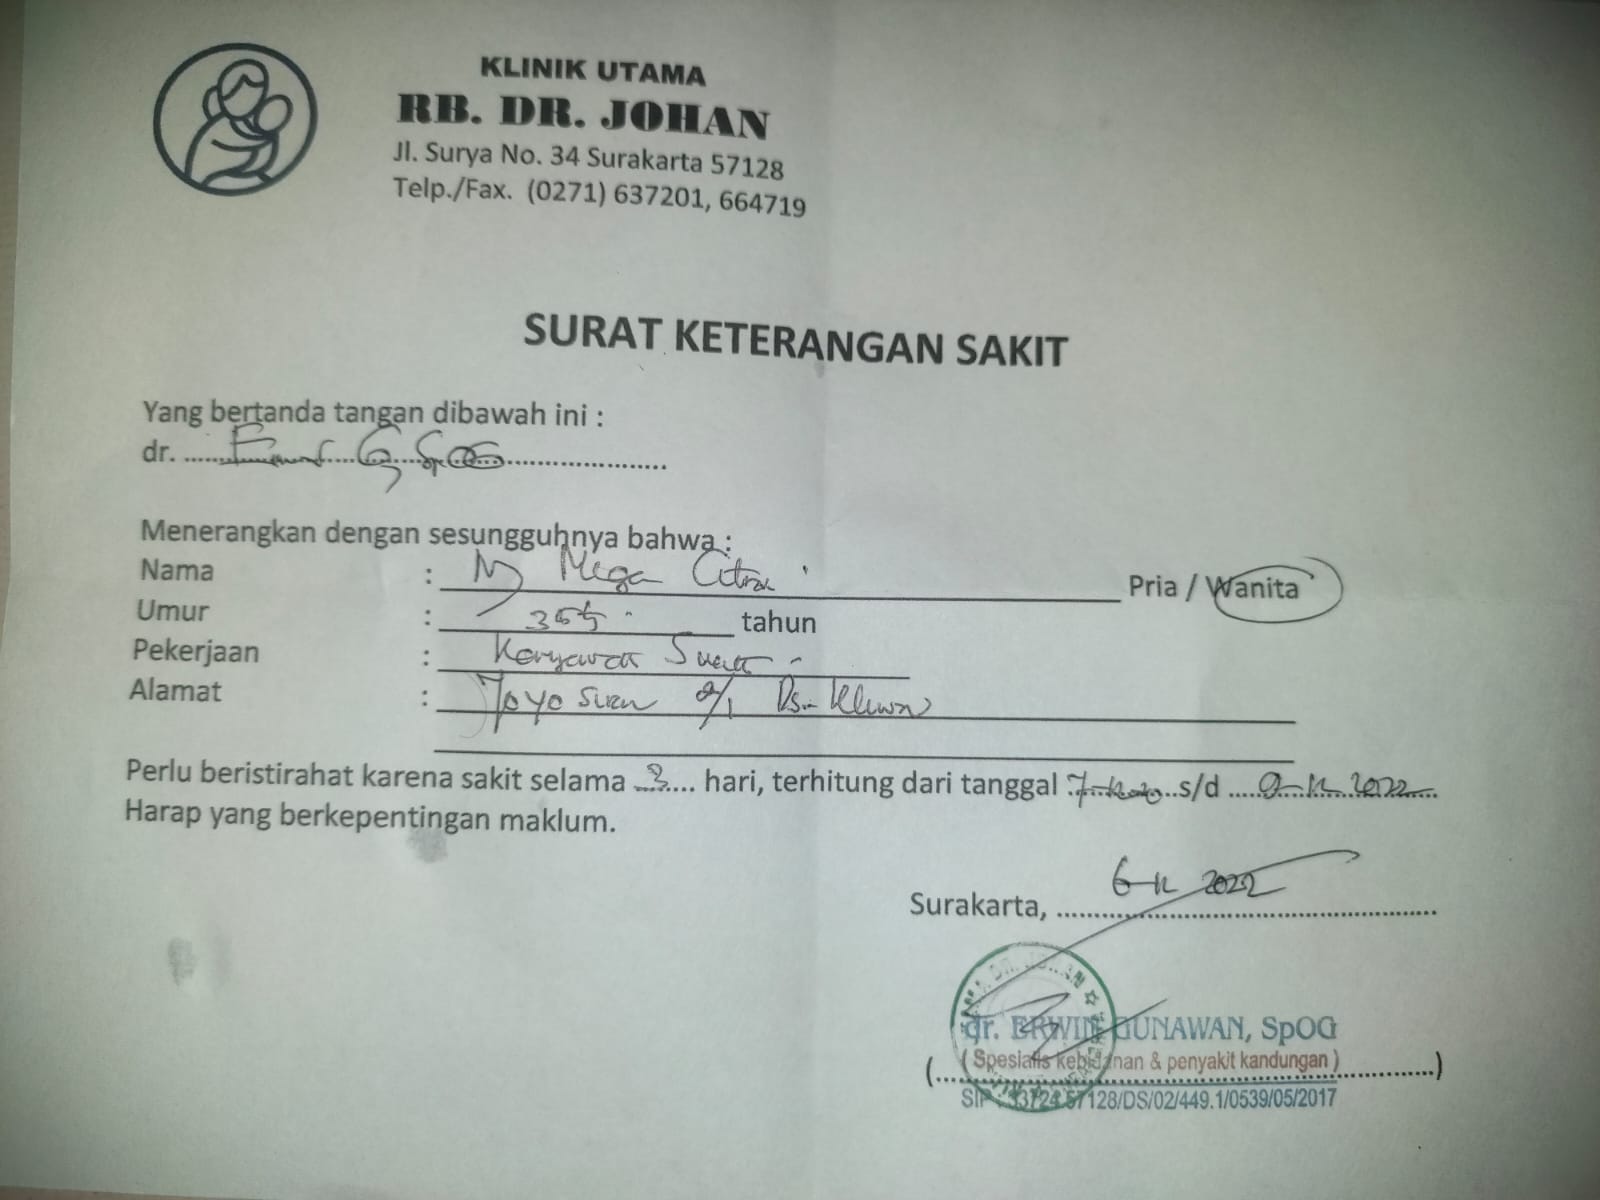 KLINIK UTAMA
RB. DR. JOHAN
Jl. Surya No. 34 Surakarta 57128
Telp./Fax. (0271) 637201, 664719
SURAT KETERANGAN SAKIT
Yang bertanda tangan dibawah ini :
dr. ........ G, SpOG ........
Menerangkan dengan sesungguhnya bahwa :
Nama : Ny Mega Citra Pria / Wanita
Umur : 35 th tahun
Pekerjaan : Karyawati Swasta
Alamat : Joyosuran 2/1 Ps. Kliwon
Perlu beristirahat karena sakit selama 3 hari, terhitung dari tanggal 7-12-2022 s/d 9-12-2022
Harap yang berkepentingan maklum.
Surakarta, 6-12 2022
dr. ERWIN GUNAWAN, SpOG
( Spesialis kebidanan & penyakit kandungan )
SIP 128/DS/02/449.1/0539/05/2017